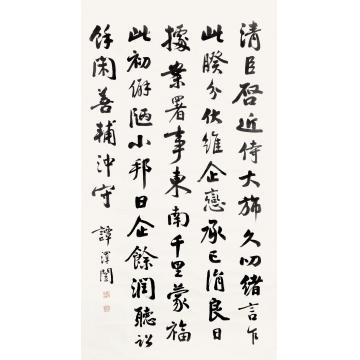 清臣启近侍大旆久叨绪言乍
此睽分伏维企恋承已消良日
据案署事东南千里蒙福
此初僻陋小邦日企余润听讼
余闲善辅冲守
谭泽闿